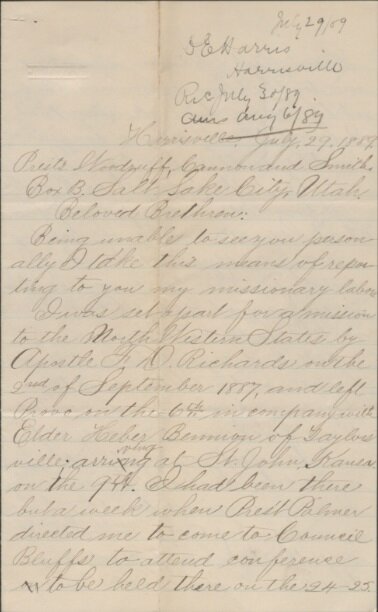 July 29, 89
D E Harris
Harrisville
Rec July 30/89.
Ans Aug 6/89
Harrisville, July, 29. 1889.
Prests Woodruff, Cannon and Smith.
Box B. Salt Lake City, Utah.
Beloved Brethren:
Being unable to see you person-
ally I take this means of repor-
ting to you my missionary labors
I was set apart for a mission
to the North Western States by
Apostle F. D. Richards on the
2nd of September 1887, and left
Provo on the 6th in company with
Elder Heber Bennion of Taylors-
ville; arriving at St. John, Kansas
on the 9th. I had been there
but a week when Prest Palmer
directed me to come to Council
Bluffs to attend conference
to be held there on the 24-25.